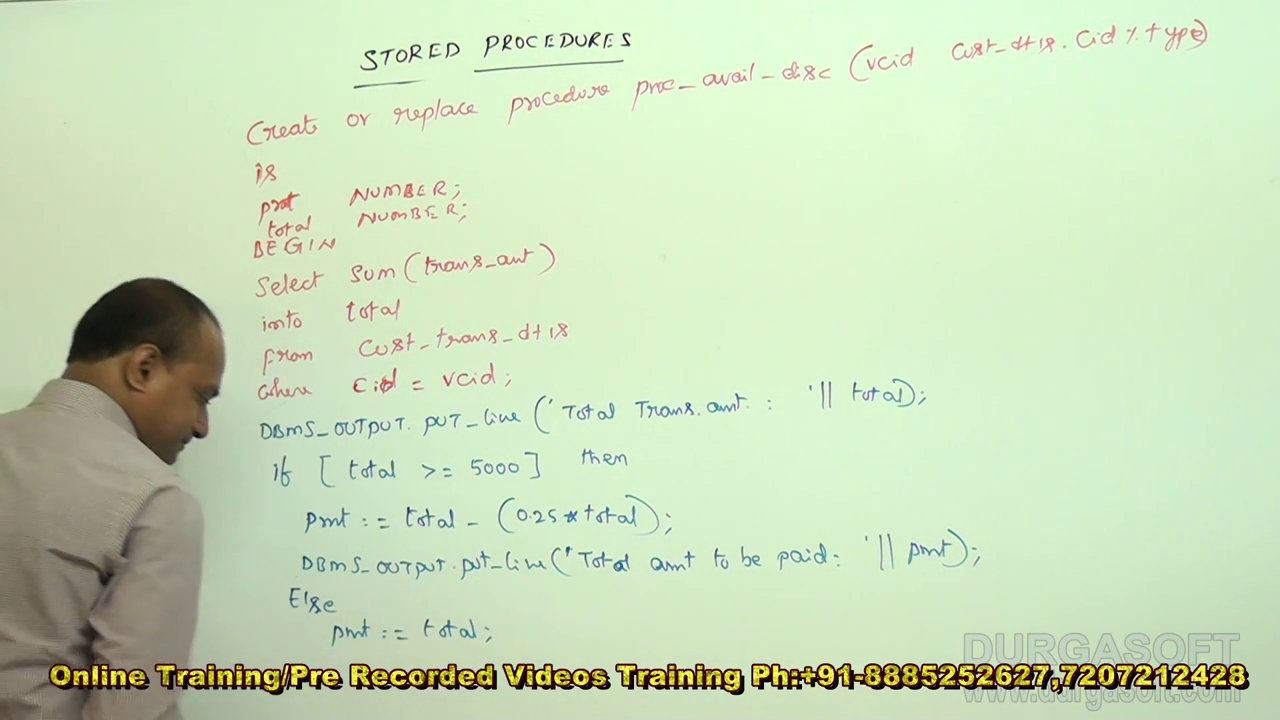 STORED PROCEDURES
Create or replace procedure proc_avail_disc (vcid cust_dtls.cid%type)
is
pmt NUMBER;
total NUMBER;
BEGIN
Select sum(trans_amt)
into total
from cust_trans_dtls
where cid = vcid;
DBMS_OUTPUT.PUT_line('Total Trans.amt. : '|| total);
if [total >= 5000] then
pmt := total - (0.25*total);
DBMS_OUTPUT.put_line('Total amt to be paid: '|| pmt);
Else
pmt := total;
DURGASOFT
Online Training/Pre Recorded Videos Training Ph:+91-8885252627,7207212428
www.durgasoft.com